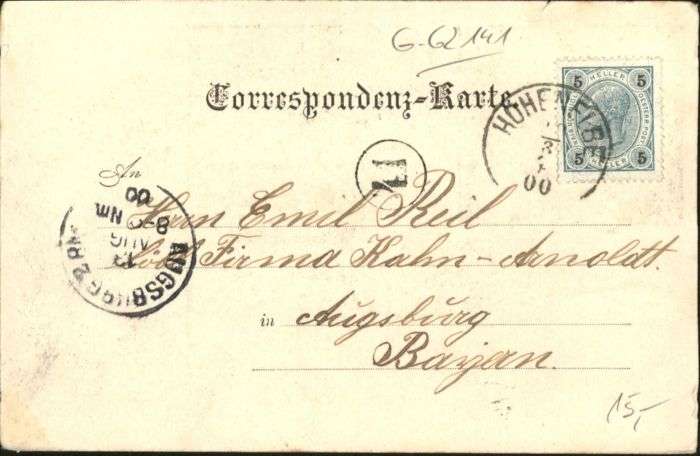 G-62 141
Correspondenz-Karte.
5 HELLER 5
5 HELLER 5
HOHENELBE
00
An
Herrn Emil Reil
Firma Kahn-Arnoldt.
in Augsburg
Bayern.
AUGSBURG 2
13
AUG
8- Nm
00
15,-